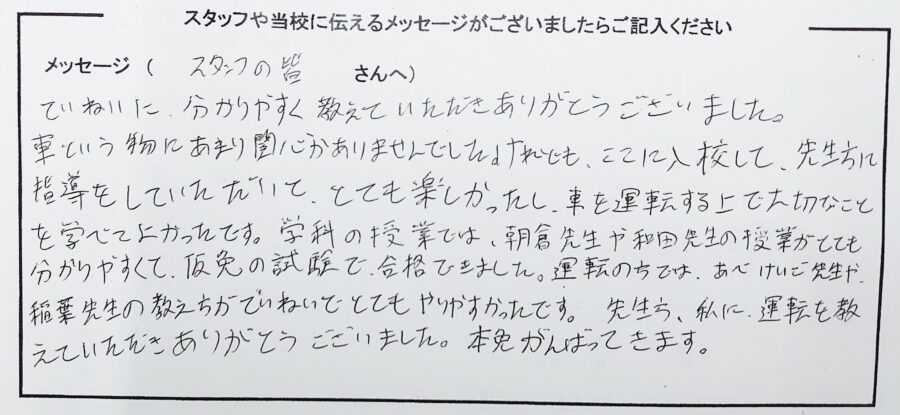 スタッフや当校に伝えるメッセージがございましたらご記入ください
メッセージ ( スタッフの皆 さんへ)
ていねいに、分かりやすく教えていただきありがとうございました。
車という物にあまり関心がありませんでしたけれども、ここに入校して、先生方に
指導をしていただいて、とても楽しかったし、車を運転する上で大切なこと
を学べてよかったです。学科の授業では、朝倉先生や和田先生の授業がとても
分かりやすくて、仮免の試験で、合格できました。運転のちでは、あべけいご先生や、
稲葉先生の教えちがていねいでとてもやりやすかったです。先生ら、私に、運転を教
えていただきありがとうございました。本免がんばってきます。